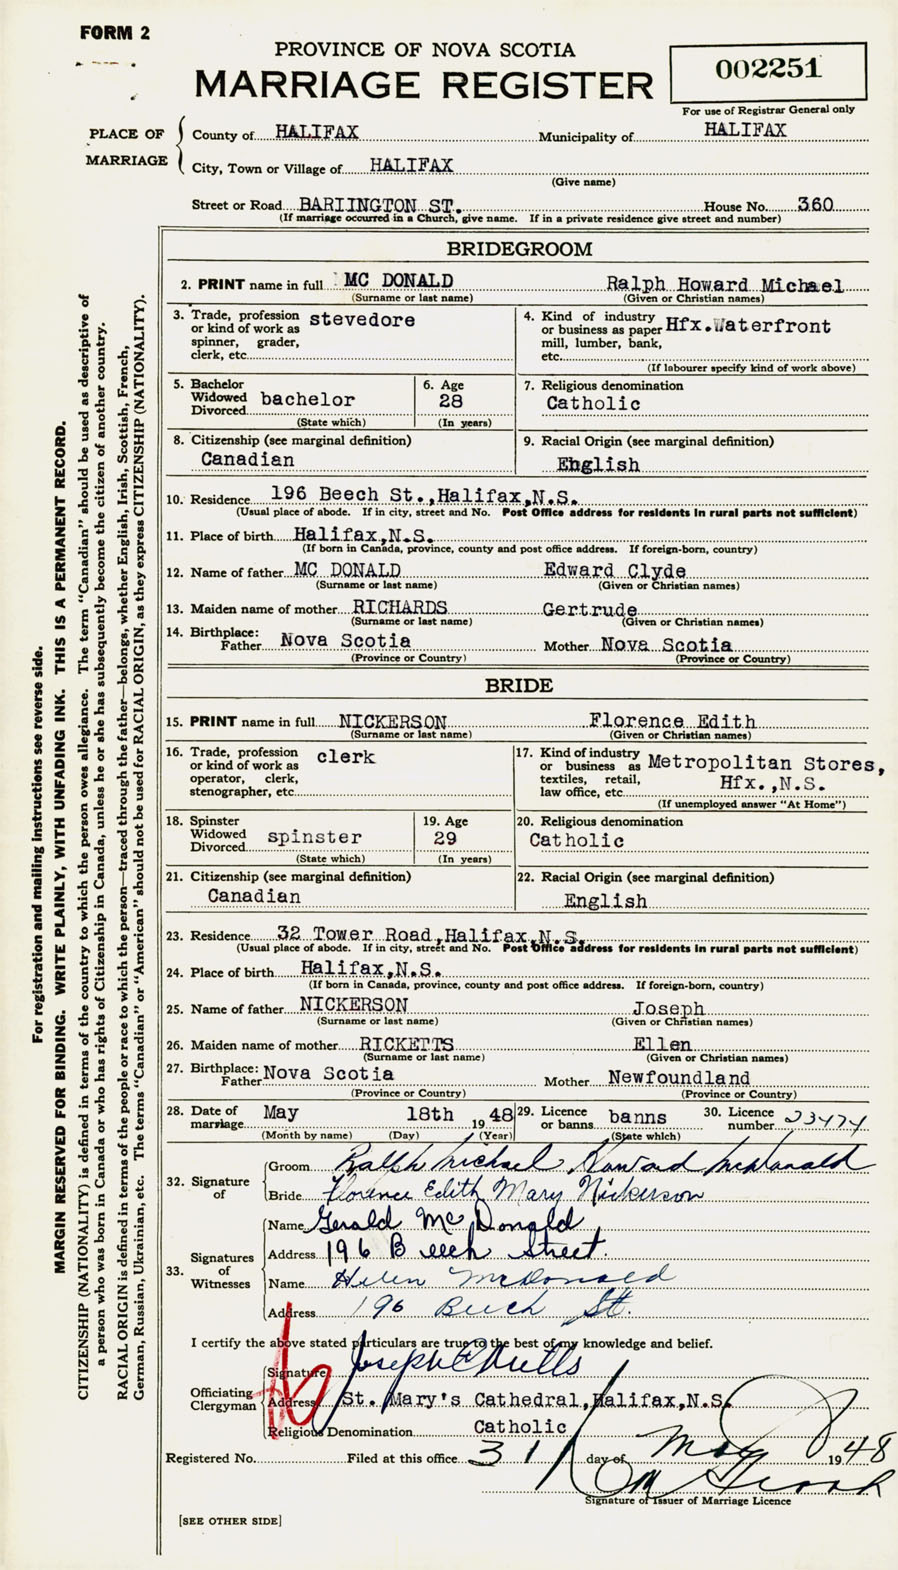 FORM 2
PROVINCE OF NOVA SCOTIA
MARRIAGE REGISTER
002251
For use of Registrar General only
PLACE OF MARRIAGE
County of HALIFAX Municipality of HALIFAX
City, Town or Village of HALIFAX
(Give name)
Street or Road BARIINGTON ST. House No. 360
(If marriage occurred in a Church, give name. If in a private residence give street and number)
BRIDEGROOM
2. PRINT name in full MC DONALD Ralph Howard Michael
(Surname or last name) (Given or Christian names)
3. Trade, profession or kind of work as spinner, grader, clerk, etc. stevedore
4. Kind of industry or business as paper mill, lumber, bank, etc. Hfx.Waterfront
(If labourer specify kind of work above)
5. Bachelor Widowed Divorced bachelor
(State which)
6. Age 28
(In years)
7. Religious denomination
Catholic
8. Citizenship (see marginal definition)
Canadian
9. Racial Origin (see marginal definition)
English
10. Residence 196 Beech St.,Halifax,N.S.
(Usual place of abode. If in city, street and No. Post Office address for residents in rural parts not sufficient)
11. Place of birth Halifax,N.S.
(If born in Canada, province, county and post office address. If foreign-born, country)
12. Name of father MC DONALD Edward Clyde
(Surname or last name) (Given or Christian names)
13. Maiden name of mother RICHARDS Gertrude
(Surname or last name) (Given or Christian names)
14. Birthplace: Father Nova Scotia Mother Nova Scotia
(Province or Country) (Province or Country)
BRIDE
15. PRINT name in full NICKERSON Florence Edith
(Surname or last name) (Given or Christian names)
16. Trade, profession or kind of work as operator, clerk, stenographer, etc. clerk
17. Kind of industry or business as textiles, retail, law office, etc. Metropolitan Stores, Hfx.,N.S.
(If unemployed answer "At Home")
18. Spinster Widowed Divorced spinster
(State which)
19. Age 29
(In years)
20. Religious denomination
Catholic
21. Citizenship (see marginal definition)
Canadian
22. Racial Origin (see marginal definition)
English
23. Residence 32 Tower Road,Halifax,N.S.
(Usual place of abode. If in city, street and No. Post Office address for residents in rural parts not sufficient)
24. Place of birth Halifax,N.S.
(If born in Canada, province, county and post office address. If foreign-born, country)
25. Name of father NICKERSON Joseph
(Surname or last name) (Given or Christian names)
26. Maiden name of mother RICKETTS Ellen
(Surname or last name) (Given or Christian names)
27. Birthplace: Father Nova Scotia Mother Newfoundland
(Province or Country) (Province or Country)
28. Date of marriage May 18th 1948
(Month by name) (Day) (Year)
29. Licence or banns banns
(State which)
30. Licence number 23474
32. Signature of
Groom Ralph Michael Howard McDonald
Bride Florence Edith Mary Nickerson
33. Signatures of Witnesses
Name Gerald McDonald
Address 196 Beech Street.
Name Helen McDonald
Address 196 Beech St.
I certify the above stated particulars are true to the best of my knowledge and belief.
Officiating Clergyman
Signature Joseph
Address St. Mary's Cathedral,Halifax,N.S.
Religious Denomination Catholic
Registered No. Filed at this office 31 day of May 1948
Signature of Issuer of Marriage Licence
[SEE OTHER SIDE]
For registration and mailing instructions see reverse side.
MARGIN RESERVED FOR BINDING. WRITE PLAINLY, WITH UNFADING INK. THIS IS A PERMANENT RECORD.
CITIZENSHIP (NATIONALITY) is defined in terms of the country to which the person owes allegiance. The term "Canadian" should be used as descriptive of
a person who was born in Canada or who has rights of Citizenship in Canada, unless he or she has subsequently become the citizen of another country.
RACIAL ORIGIN is defined in terms of the people or race to which the person—traced through the father—belongs, whether English, Irish, Scottish, French,
German, Russian, Ukrainian, etc. The terms "Canadian" or "American" should not be used for RACIAL ORIGIN, as they express CITIZENSHIP (NATIONALITY).